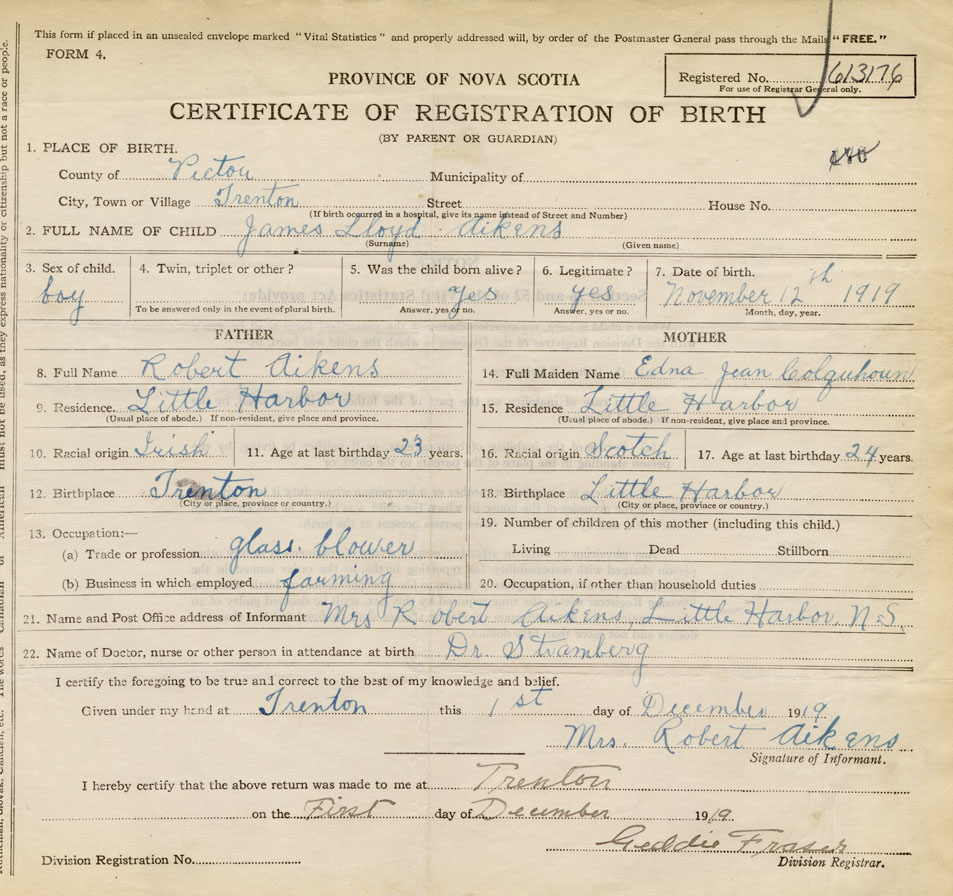 This form if placed in an unsealed envelope marked "Vital Statistics" and properly addressed will, by order of the Postmaster General pass through the Mails "FREE."
FORM 4.
PROVINCE OF NOVA SCOTIA
Registered No. 613176
For use of Registrar General only.
CERTIFICATE OF REGISTRATION OF BIRTH
(BY PARENT OR GUARDIAN)
1. PLACE OF BIRTH.
County of Pictou Municipality of
City, Town or Village Trenton Street House No.
(If birth occurred in a hospital, give its name instead of Street and Number)
2. FULL NAME OF CHILD James Lloyd Aikens
(Surname) (Given name)
3. Sex of child. 4. Twin, triplet or other? 5. Was the child born alive? 6. Legitimate? 7. Date of birth.
boy yes yes November 12th 1919
To be answered only in the event of plural birth. Answer, yes or no. Answer, yes or no. Month, day, year.
FATHER MOTHER
8. Full Name Robert Aikens 14. Full Maiden Name Edna Jean Colquhoun
9. Residence. Little Harbor 15. Residence Little Harbor
(Usual place of abode.) If non-resident, give place and province. (Usual place of abode.) If non-resident, give place and province.
10. Racial origin Irish 11. Age at last birthday 23 years. 16. Racial origin Scotch 17. Age at last birthday 24 years.
12. Birthplace Trenton 18. Birthplace Little Harbor
(City or place, province or country.) (City or place, province or country.)
13. Occupation:— 19. Number of children of this mother (including this child.)
(a) Trade or profession glass. blower Living Dead Stillborn
(b) Business in which employed farming 20. Occupation, if other than household duties
21. Name and Post Office address of Informant Mrs Robert Aikens, Little Harbor N.S.
22. Name of Doctor, nurse or other person in attendance at birth Dr. Stramberg
I certify the foregoing to be true and correct to the best of my knowledge and belief.
Given under my hand at Trenton this 1st day of December 1919
Mrs. Robert Aikens
Signature of Informant.
I hereby certify that the above return was made to me at Trenton
on the First day of December 1919.
Geddie Fraser
Division Registrar.
Division Registration No.